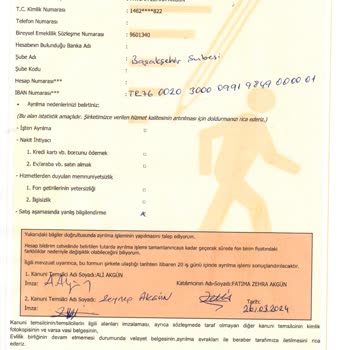 T.C. Kimlik Numarası : 1462****822
Telefon Numarası :
Bireysel Emeklilik Sözleşme Numarası : 9601340
Hesabının Bulunduğu Banka Adı :
Şube Adı : Başakşehir Şubesi
Şube Kodu :
Hesap Numarası*** :
IBAN Numarası*** : TR76 0020 3000 0991 9849 0000 01
• Ayrılma nedenlerinizi belirtiniz:
(Bu alan istatistik amaçlıdır. Şirketimizce verilen hizmet kalitesinin artırılması için doldurmanızı rica ederiz.)
- İşten Ayrılma
- Nakit İhtiyacı
1. Kredi kartı vb. borcunu ödemek
2. Ev/araba vb. satın almak
- Hizmetlerden duyulan memnuniyetsizlik
1. Fon getirilerinin yetersizliği
2. İlgisizlik
- Satış aşamasında yanlış bilgilendirme x
Yukarıdaki bilgiler doğrultusunda ayrılma işleminin yapılmasını talep ediyorum.
Hesap bildirim cetvelinde belirtilen tutarda ayrılma işlemi tamamlanıncaya kadar geçerek sürede fon birim fiyatındaki
farklılıklar nedeniyle değişiklik olabileceğini biliyorum.
İlgili mevzuat uyarınca, bu formun şirkete ulaştığı tarihten itibaren 20 iş günü içinde ayrılma işlemi sonuçlandırılacaktır.
1. Kanuni Temsilci Adı Soyadı: ALİ AKGÜN Katılımcının Adı-Soyadı: FATIMA ZEHRA AKGÜN
İmza: İmza:
2. Kanuni Temsilci Adı Soyadı: Zeynep Akgün Tarih:
İmza: 26.03.2024
Kanuni temsilcinin/temsilcilerin ilgili alanları imzalaması, ayrıca sözleşmede taraf olmayan diğer kanuni temsilcinin kimlik
fotokopisinin ve varsa vesi belgesinin,
Evlilik birliğinin devam etmemesi durumunda velayet belgesinin,ayrılma evrakları ile beraber tarafımıza iletilmesini rica
ederiz.